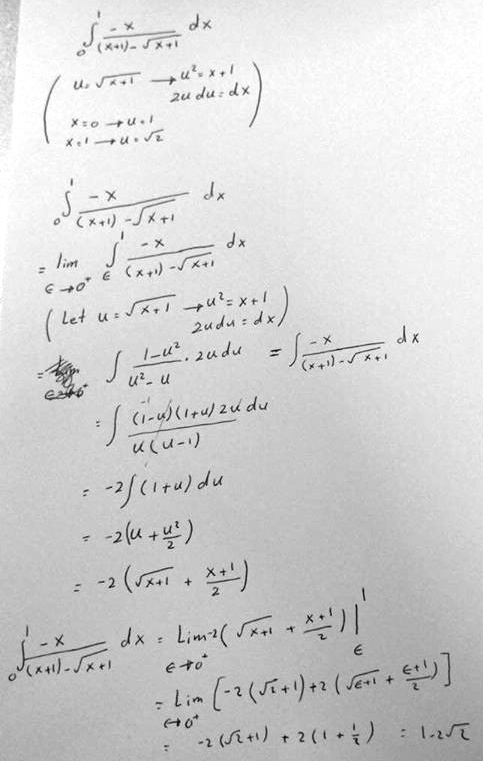 ∫₀¹ -x / ((x+1) - √(x+1)) dx
( u = √(x+1) → u² = x+1
2u du = dx
x=0 → u=1
x=1 → u=√2 )
∫₀¹ -x / ((x+1) - √(x+1)) dx
= lim_{ε→0⁺} ∫_ε^1 -x / ((x+1) - √(x+1)) dx
( Let u = √(x+1) → u² = x+1
2u du = dx )
= ∫ (1-u²)/(u²-u) · 2u du = ∫ -x / ((x+1) - √(x+1)) dx
= ∫ (1-u)(1+u) 2u du / (u(u-1))
= -2∫(1+u) du
= -2(u + u²/2)
= -2(√(x+1) + (x+1)/2)
∫₀¹ -x / ((x+1) - √(x+1)) dx = Lim_{ε→0⁺} -2(√(x+1) + (x+1)/2) |_ε^1
= Lim_{ε→0⁺} [-2(√2+1) + 2(√(ε+1) + (ε+1)/2)]
= -2(√2+1) + 2(1 + 1/2) = 1-2√2